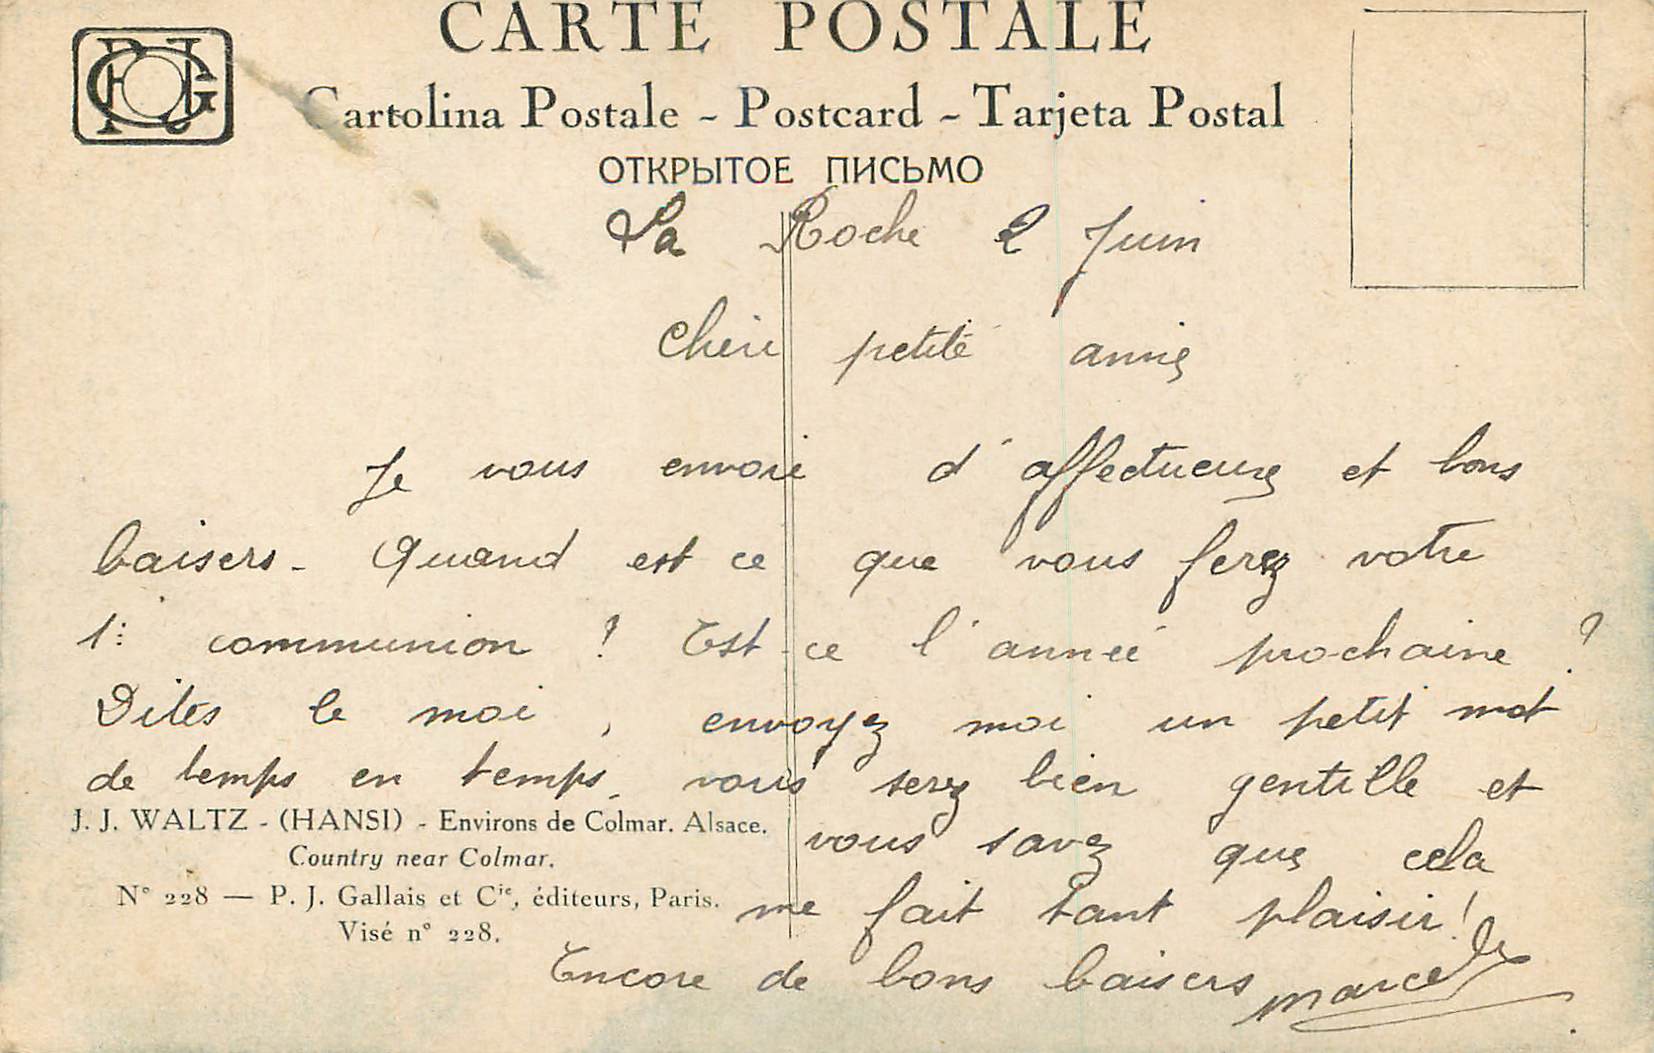 CARTE POSTALE
Cartolina Postale - Postcard - Tarjeta Postal
ОТКРЫТОЕ ПИСЬМО
La Roche 2 Juin
Cherie petite amie
Je vous envoie d'affectueux et bons
baisers - Quand est ce que vous ferez votre
1e communion ? Est-ce l'année prochaine ?
Dites le moi, envoyez moi un petit mot
de temps en temps, vous serez bien gentille et
vous savez que cela
me fait tant plaisir !
Encore de bons baisers
J. J. WALTZ - (HANSI) - Environs de Colmar. Alsace.
Country near Colmar.
N° 228 — P. J. Gallais et Cie, éditeurs, Paris.
Visé n° 228.